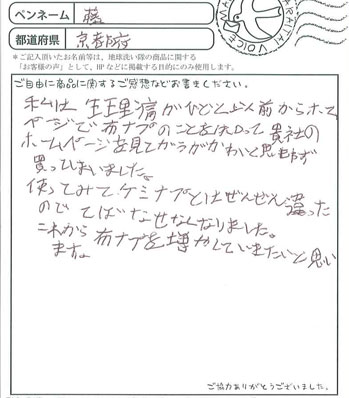 ペンネーム 藤
都道府県 京都府
＊ご記入頂いたお名前等は、地球洗い隊の商品に関する
「お客様の声」として、HPなどに掲載する目的にのみ使用します。
ご自由に商品に関するご感想などお書きください。
私は 生理痛がひどく以前からホーム
ページで布ナプのことを知って貴社の
ホームページを見てがらがかわいと思わず
買ってしまいました。
使ってみてケミナプとはぜんぜん違った
のでてばなせなくなりました。
これから布ナプを増かしていきたいと思い
ます。
ご協力ありがとうございました。